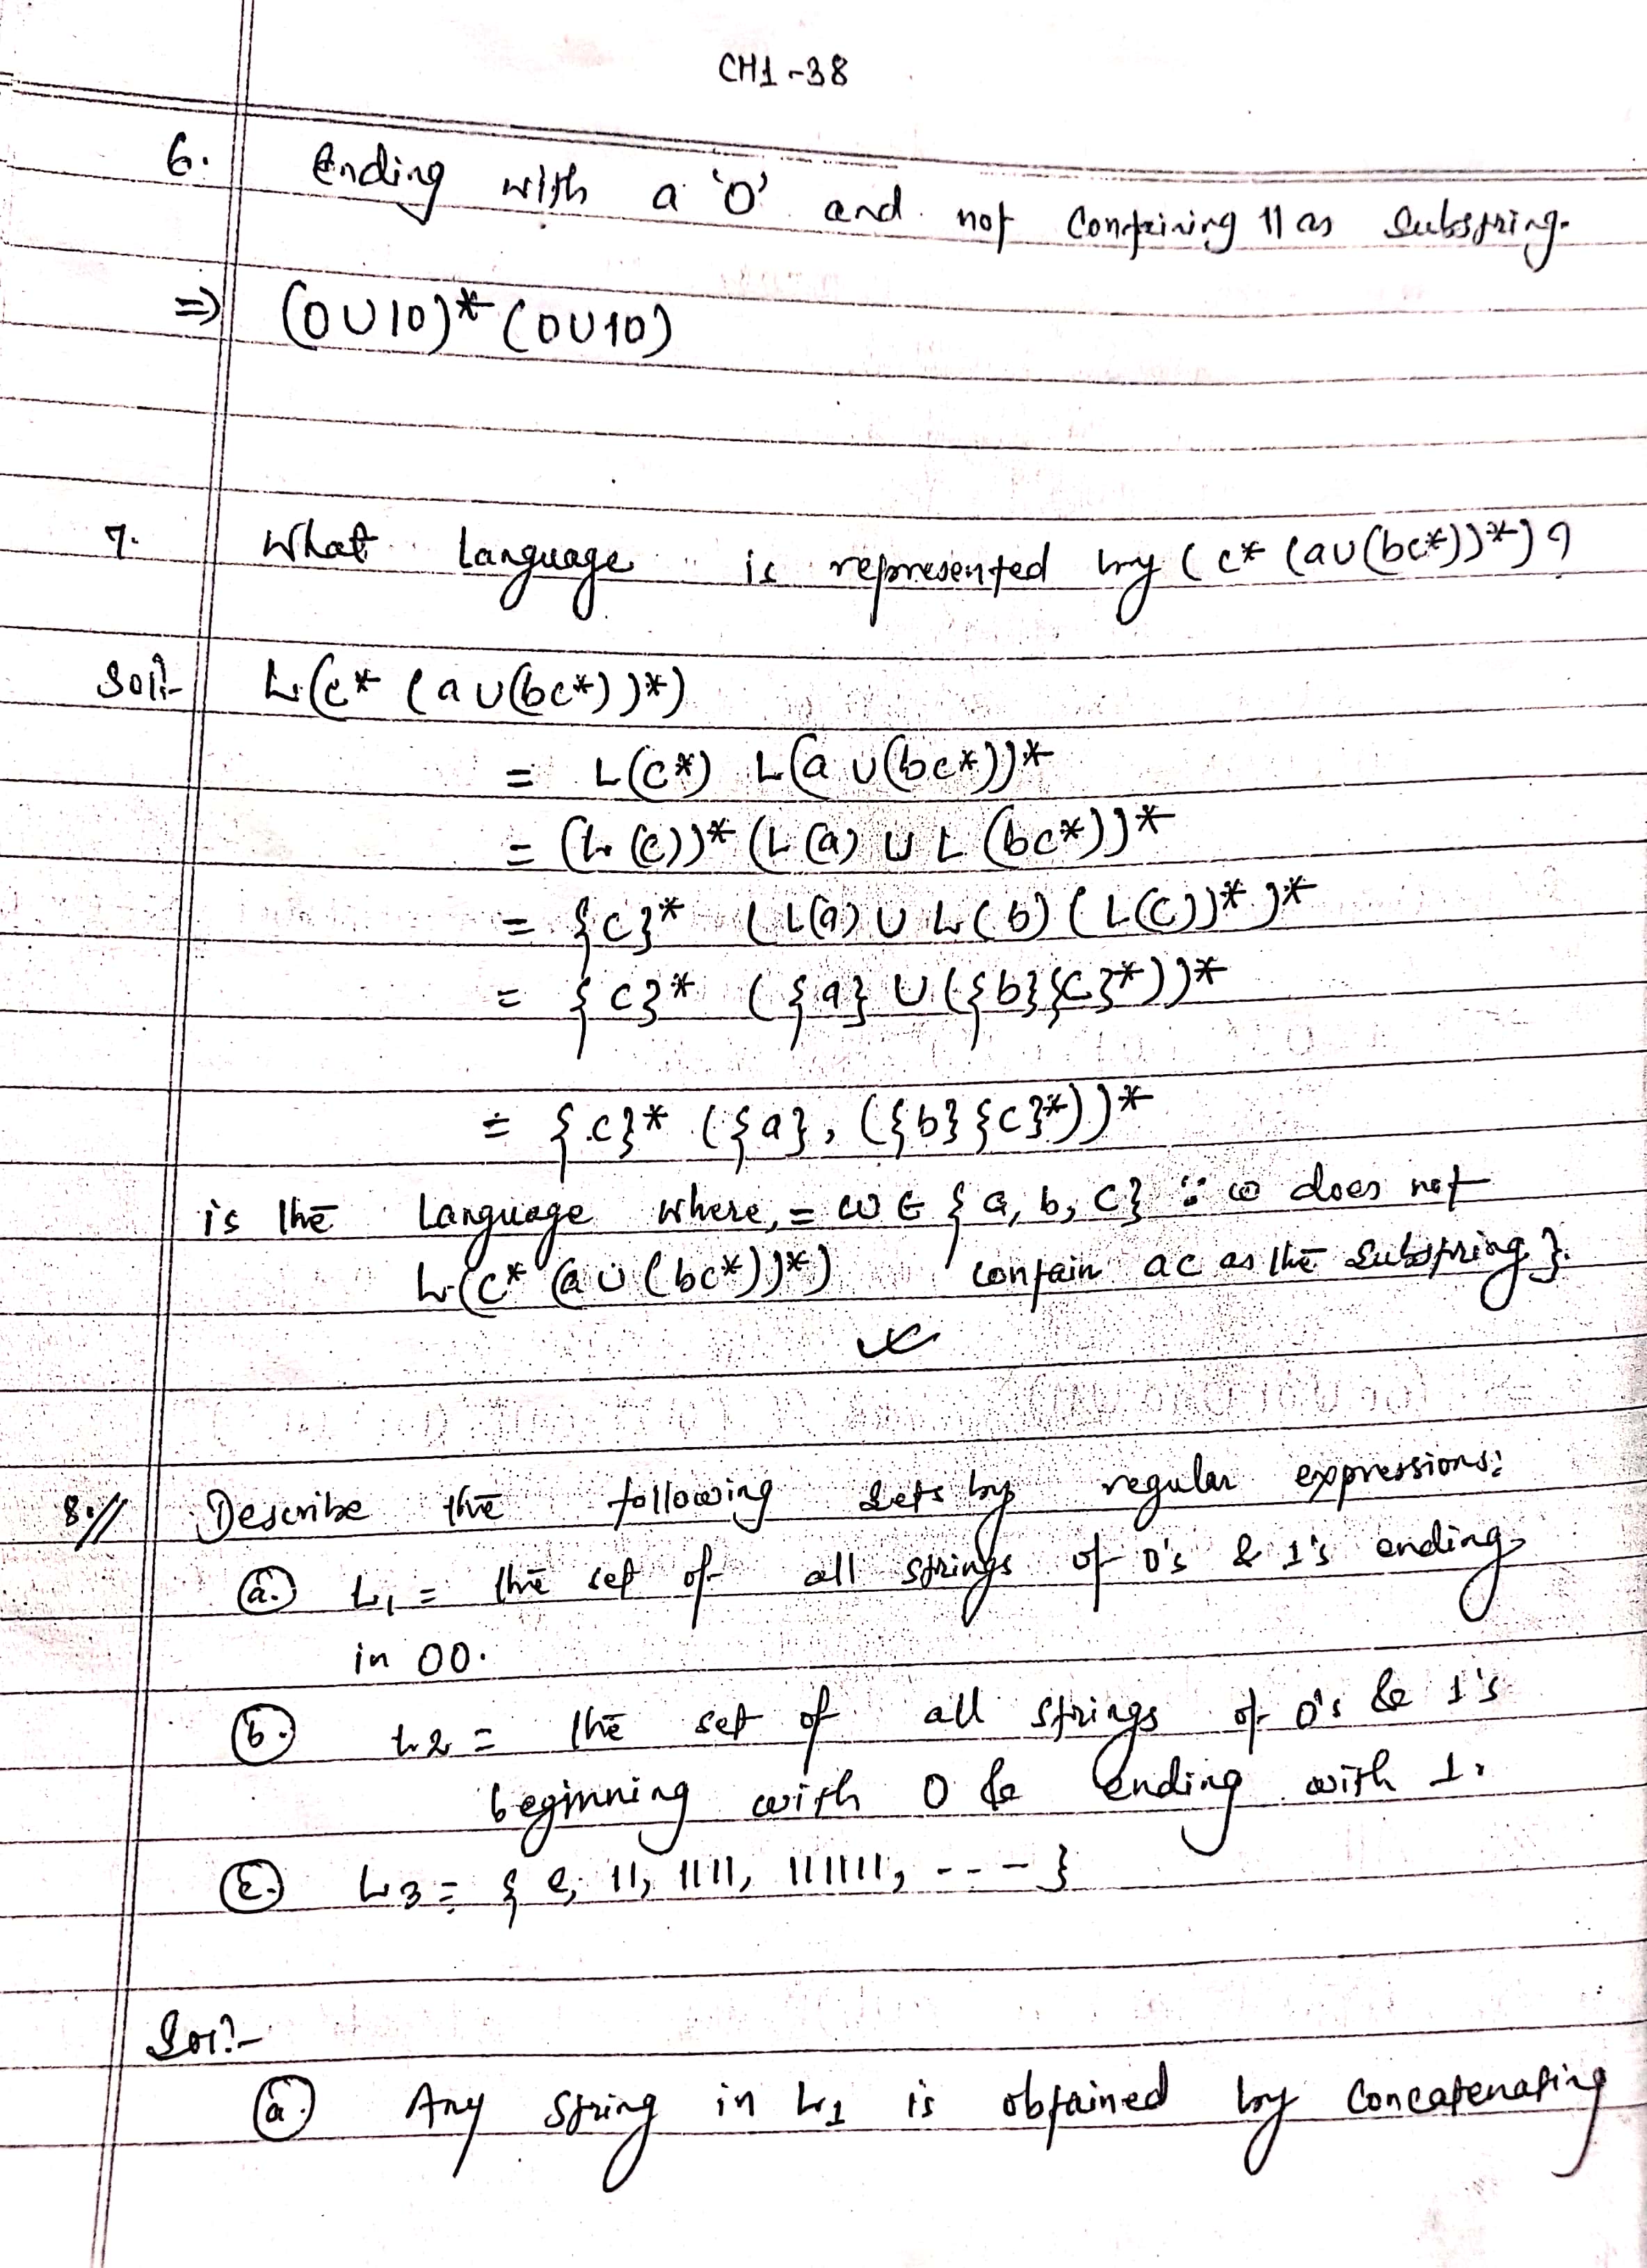 CH1-38
6. Ending with a '0' and not containing 11 as substring.
⇒ (0∪10)* (0∪10)
7. What language is represented by (c* (a∪(bc*))*)?
Sol:- L(c* (a∪(bc*))*)
= L(c*) L(a∪(bc*))*
= (L(c))* (L(a) ∪ L(bc*))*
= {c}* (L(a) ∪ L(b) (L(c))*)*
= {c}* ({a} ∪ ({b}{c}*))*
= {c}* ({a}, ({b}{c}*))*
is the language where, = w ∈ {a, b, c} : w does not
L(c* (a∪(bc*))*) contain ac as the substring}.
8.// Describe the following sets by regular expressions:
(a.) L1 = the set of all strings of 0's & 1's ending
in 00.
(b.) L2 = the set of all strings of 0's & 1's
beginning with 0 & ending with 1.
(c.) L3 = {e, 11, 1111, 111111, ---- }
Sol:-
(a.) Any string in L1 is obtained by concatenating